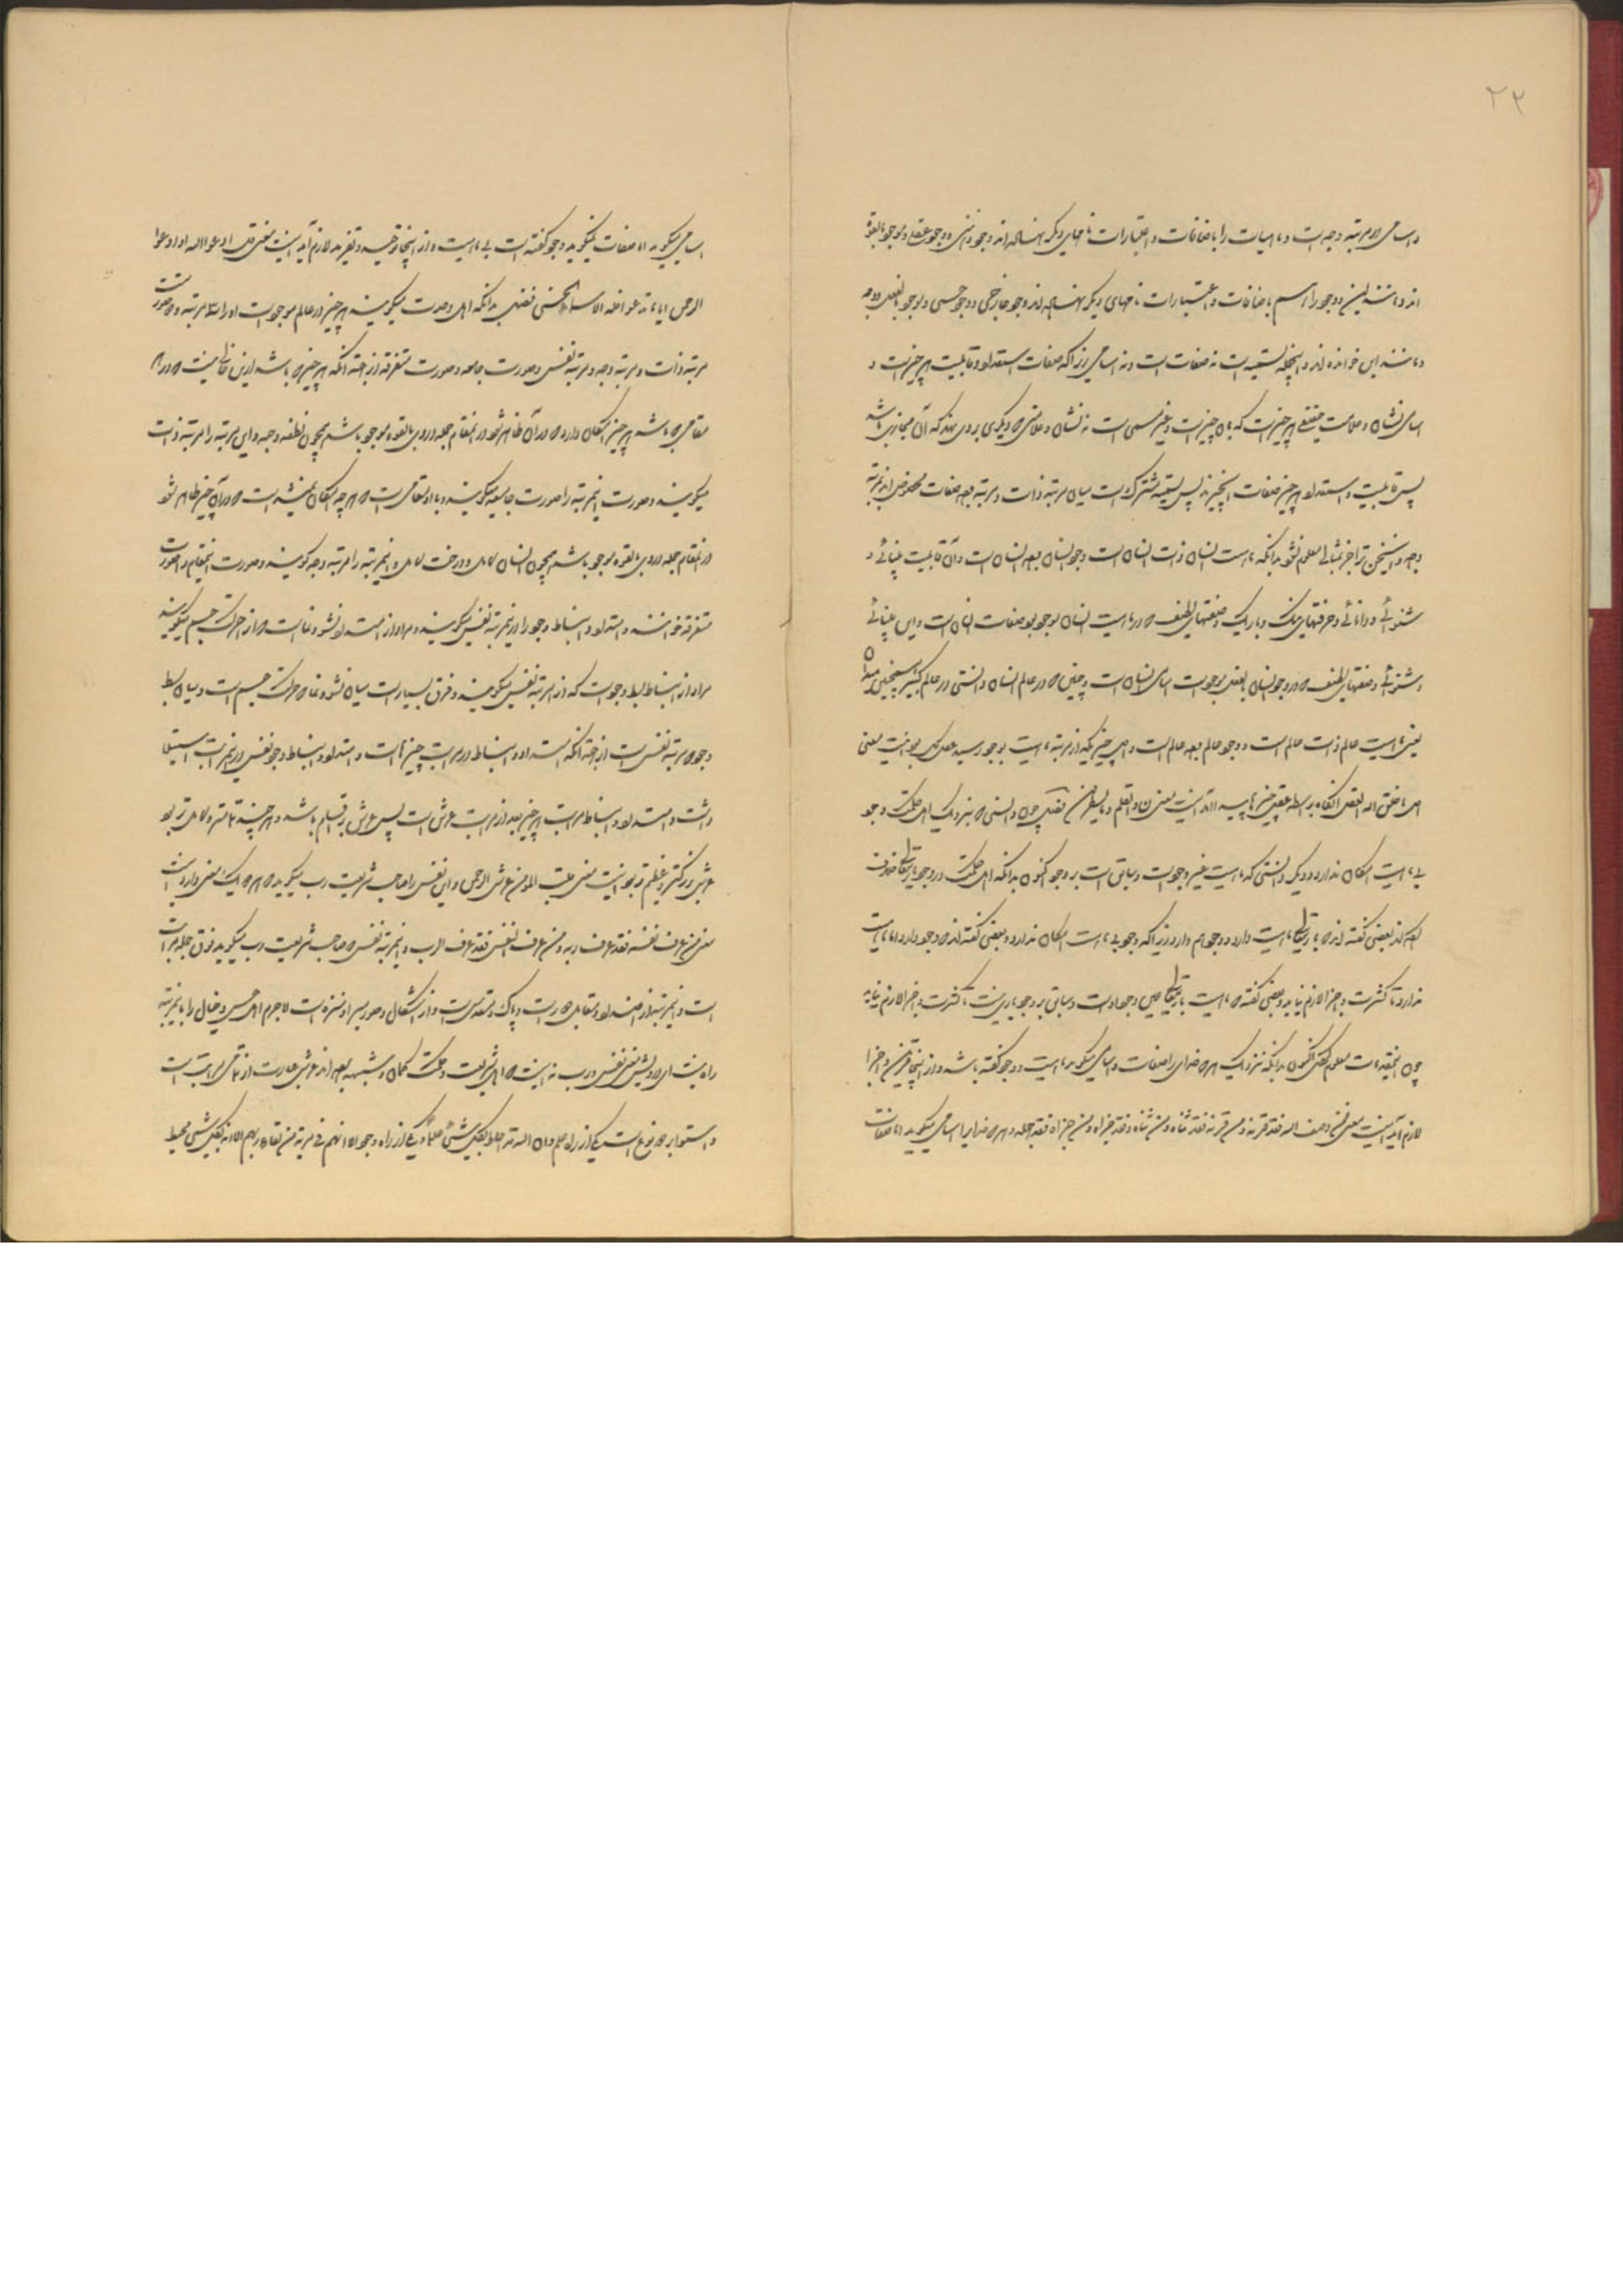 ۲۲
و اسامی در مرتبه وجه است و ماهیات را باضافات و اعتبارات نامهای دیگر نهاده‌اند وجود ذهنی و وجود عقلی و موجود بالقوه
اند و مانند این و وجود را هم باضافات و اعتبارات نامهای دیگر نهاده‌اند وجود خارجی و وجود حسی و موجود بالفعل و وجه
و مانند این خوانده‌اند و اینجمله تسمیه است نه صفات است و نه اسامی زیرا که صفات استعداد و قابلیت هر چیز است و
اسامی نشان و علامت حقیقی هر چیز است که بآن چیز است و غیر مسمی است نه نشان و علامتی که دیگری بر وی نهد که آن مجازی باشد
پس قابلیت و استعداد هر چیز صفات آنچیزند پس تسمیه مشترک است میان مرتبه ذات و مرتبه وجه صفات مخصوص اند بمرتبه
وجه و اینسخن ترا جز بمثالی معلوم نشود بدانکه ماهیت انسان ذات انسان است وجود انسان وجه انسان است و آن قابلیت بینائی و
شنوائی و دانائی و حرفتهای و باریک و صنعتهای لطیف که در ماهیت انسان موجود بود صفات انسان است و این بینائی
و شنوائی و صنعتهای لطیف که در وجود انسان بالفعل موجود است اسامی انسان است و چنین که در عالم انسان دانستی در عالم کبیر همچنین میدان
یعنی ماهیت عالم ذات عالم است و وجود عالم وجه عالم است و اول چیزیکه از مرتبه ماهیت بوجود رسید عقل بود اینست معنی
اول ما خلق الله العقل آنگاه بواسطه عقل چیزها پیدا آمد اینست معنی ن والقلم و ما یسطرون چون دانستی که بنزدیک اهل حکمت وجود
بی ماهیت امکان ندارد و دیگر دانستی که ماهیت غیر وجود است و سابق است بر وجود اکنون بدانکه اهل حکمت در وجود باریتعالی خلاف
کرده‌اند بعضی گفته‌اند که باریتعالی ماهیت دارد و وجود هم دارد زیرا که وجود بی ماهیت امکان ندارد و بعضی گفته‌اند که وجود دارد اما ماهیت
ندارد تا کثرت و اجزا لازم نیاید و بعضی گفته‌اند که ماهیت باریتعالی عین وجود است و سابق بر وجود باری نیست تا کثرت و اجزا لازم نیاید
چون اینمقدمات معلوم کردی اکنون بدانکه نزدیک هر که خدای را صفات و اسامی میگوید ماهیت و وجود گفته باشد و از اینجا قرین و اجزا
لازم آید اینست معنی فمن وصف الله فقد قرنه و من قرنه فقد ثناه و من ثناه فقد جزاه و من جزاه فقد جهله و هر که خدایرا اسامی میگوید اما صفات
اسامی میگوید اما صفات نمیگوید وجود گفته است بی ماهیت و از اینجا توحید و تفرید لازم آید اینست معنی قل ادعوا الله او ادعوا
الرحمن ایاما تدعوا فله الاسماء الحسنی فصل بدانکه اهل وحدت میگویند هر چیز در عالم موجود است او را سه مرتبه و دو صورت است
مرتبه ذات و مرتبه وجه و مرتبه نفس و صورت جامعه و صورت متفرقه از جهت آنکه هر چیز که باشد ازین خالی نیست که در اول
مقامی که باشد هر چیز امکان دارد که در آن ظاهر شود در آنمقام جمله در وی بالقوه موجود باشد همچون نطفه و حبه و این مرتبه را مرتبه ذات
میگویند و صورت اینمرتبه را صورت جامعه میگویند و باز مقامی است که هر چه امکان است که در آن چیز ظاهر شود
در آنمقام جمله در وی بالقوه موجود باشد همچون انسان کامل و درخت کامل و اینمرتبه را مرتبه وجه گویند و صورت اینمقام را صورت
متفرقه خوانند و امتداد و انبساط وجود را در اینمرتبه نفس میگویند و مراد از امتداد نشو و نما است که از حرکت جسم میگویند
مراد از انبساط بسط وجود است که از مرتبه نفس میگویند و فرق بسیار است میان نشو و نما که حرکت جسم است و میان بسط
وجود که مرتبه نفس است از جهت آنکه امتداد و انبساط در مراتب چیزهاست و امتداد و انبساط وجود نفس در اینمراتب استیلا
داشت و امتداد و انبساط مراتب هر چیز بعد از مراتب عرش است پس عرش بر اقسام باشد و هر چند تمامتر و کاملتر بود
عرش بزرگتر و عظیم‌تر بود اینست معنی قلب المؤمن عرش الرحمن و این نفس را صاحب شریعت رب میگوید که هر یک معنی دارد اینست
معنی من عرف نفسه فقد عرف ربه و من عرف النفس فقد عرف الرب و اینمرتبه نفس که صاحب شریعت رب میگوید فوق جمله مراتب
است و اینمرتبه از ضد و مقابل دور است و پاک و مقدس است و از اشکال و صور مبرا و منزه است لاجرم اهل حس و خیال را باینمرتبه
راه نیست ای درویش معنی نفس و رب نه اینست که اهل شریعت و حکمت گمان و شبهه برده‌اند عرش عبارت از تمامی مراتب است
و استوا بر دو نوع است یکی از راه علم و ان الله قد احاط بکل شئ علما و یکی از راه وجود الا انهم فی مریة من لقاء ربهم الا انه بکل شئ محیط